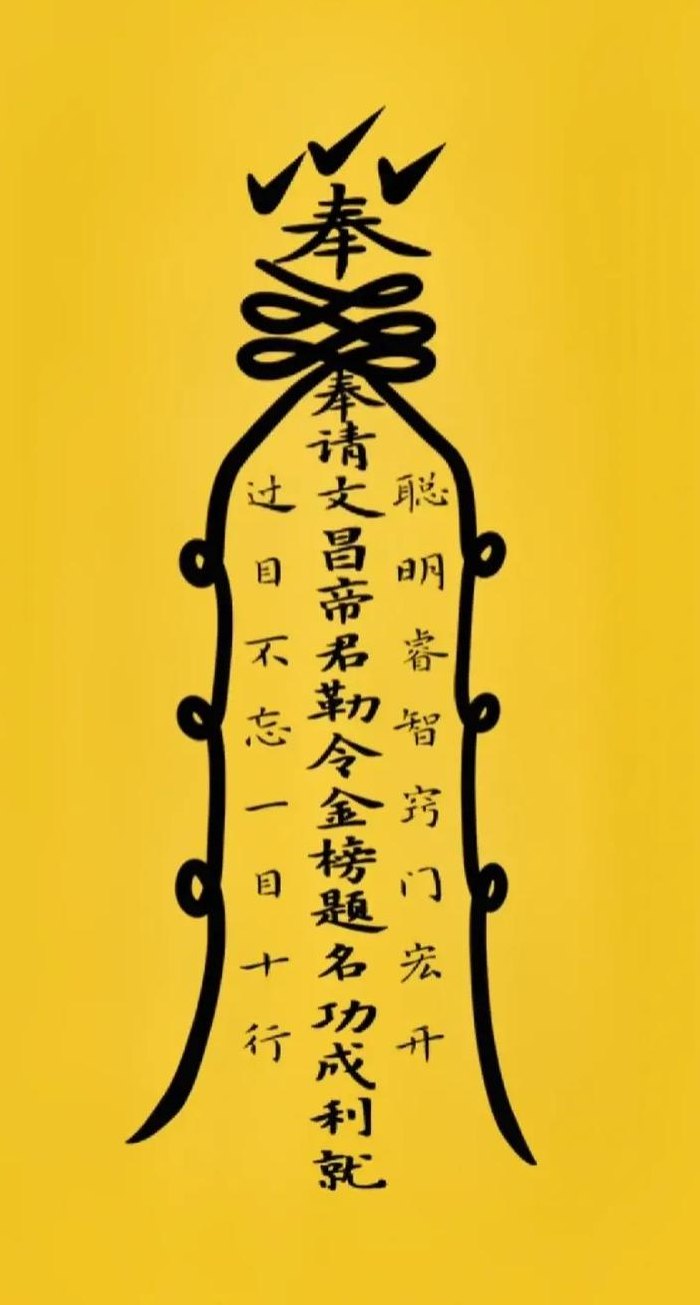 奉
奉请文昌帝君勒令金榜题名功成利就
聪明睿智窍门宏开
过目不忘一目十行